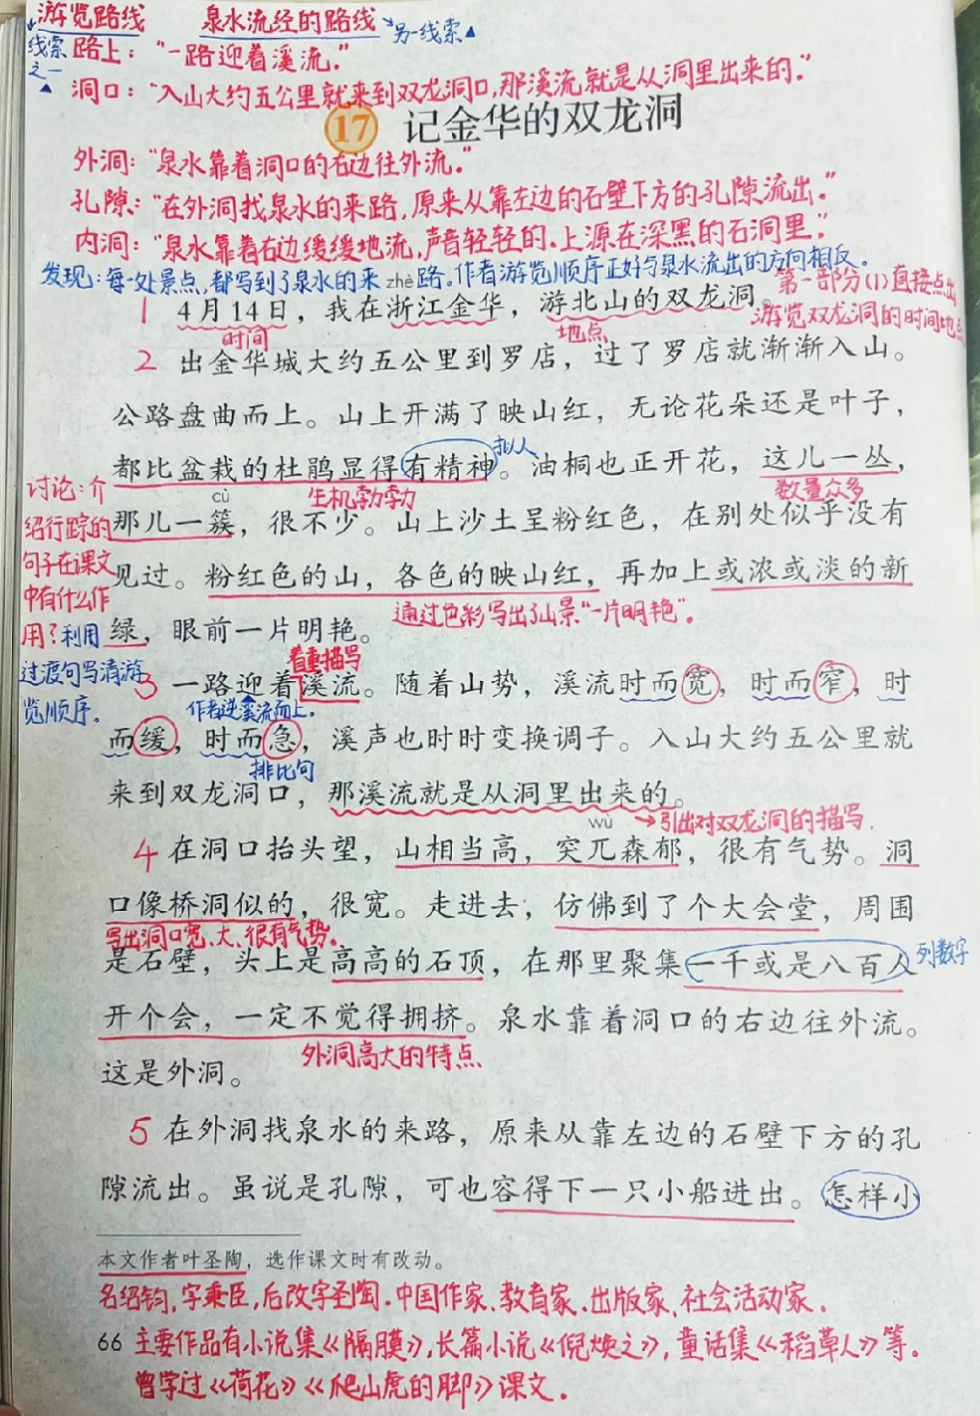 游览路线 泉水流经的路线 另一线索
线索之一
路上：“一路迎着溪流。”
洞口：“入山大约五公里就来到双龙洞口，那溪流就是从洞里出来的。”
17 记金华的双龙洞
外洞：“泉水靠着洞口的右边往外流。”
孔隙：“在外洞找泉水的来路，原来从靠左边的石壁下方的孔隙流出。”
内洞：“泉水靠着右边缓缓地流，声音轻轻的。上源在深黑的石洞里。”
发现：每一处景点，都写到了泉水的来路。作者游览顺序正好与泉水流出的方向相反。
zhè
第一部分(1)直接点出
游览双龙洞的时间地点
1 4月14日，我在浙江金华，游北山的双龙洞。
时间 地点
2 出金华城大约五公里到罗店，过了罗店就渐渐入山。
公路盘曲而上。山上开满了映山红，无论花朵还是叶子，
都比盆栽的杜鹃显得有精神。油桐也正开花，这儿一丛，
拟人
cù
生机勃勃 数量众多
那儿一簇，很不少。山上沙土呈粉红色，在别处似乎没有
见过。粉红色的山，各色的映山红，再加上或浓或淡的新
通过色彩写出了山景“一片明艳”。
绿，眼前一片明艳。
讨论：介
绍行踪的
句子在课文
中有什么作
用？利用
过渡句写清游
览顺序。
着重描写
3 一路迎着溪流。随着山势，溪流时而宽，时而窄，时
作者逆溪流而上。
而缓，时而急，溪声也时时变换调子。入山大约五公里就
排比句
来到双龙洞口，那溪流就是从洞里出来的。
wù
引出对双龙洞的描写.
4 在洞口抬头望，山相当高，突兀森郁，很有气势。洞
口像桥洞似的，很宽。走进去，仿佛到了个大会堂，周围
写出洞口宽、大、很有气势。
是石壁，头上是高高的石顶，在那里聚集一千或是八百人
列数字
开个会，一定不觉得拥挤。泉水靠着洞口的右边往外流。
外洞高大的特点
这是外洞。
5 在外洞找泉水的来路，原来从靠左边的石壁下方的孔
隙流出。虽说是孔隙，可也容得下一只小船进出。怎样小
本文作者叶圣陶，选作课文时有改动。
名绍钧，字秉臣，后改字圣陶．中国作家、教育家、出版家、社会活动家．
66 主要作品有小说集《隔膜》，长篇小说《倪焕之》，童话集《稻草人》等。
曾学过《荷花》《爬山虎的脚》课文．